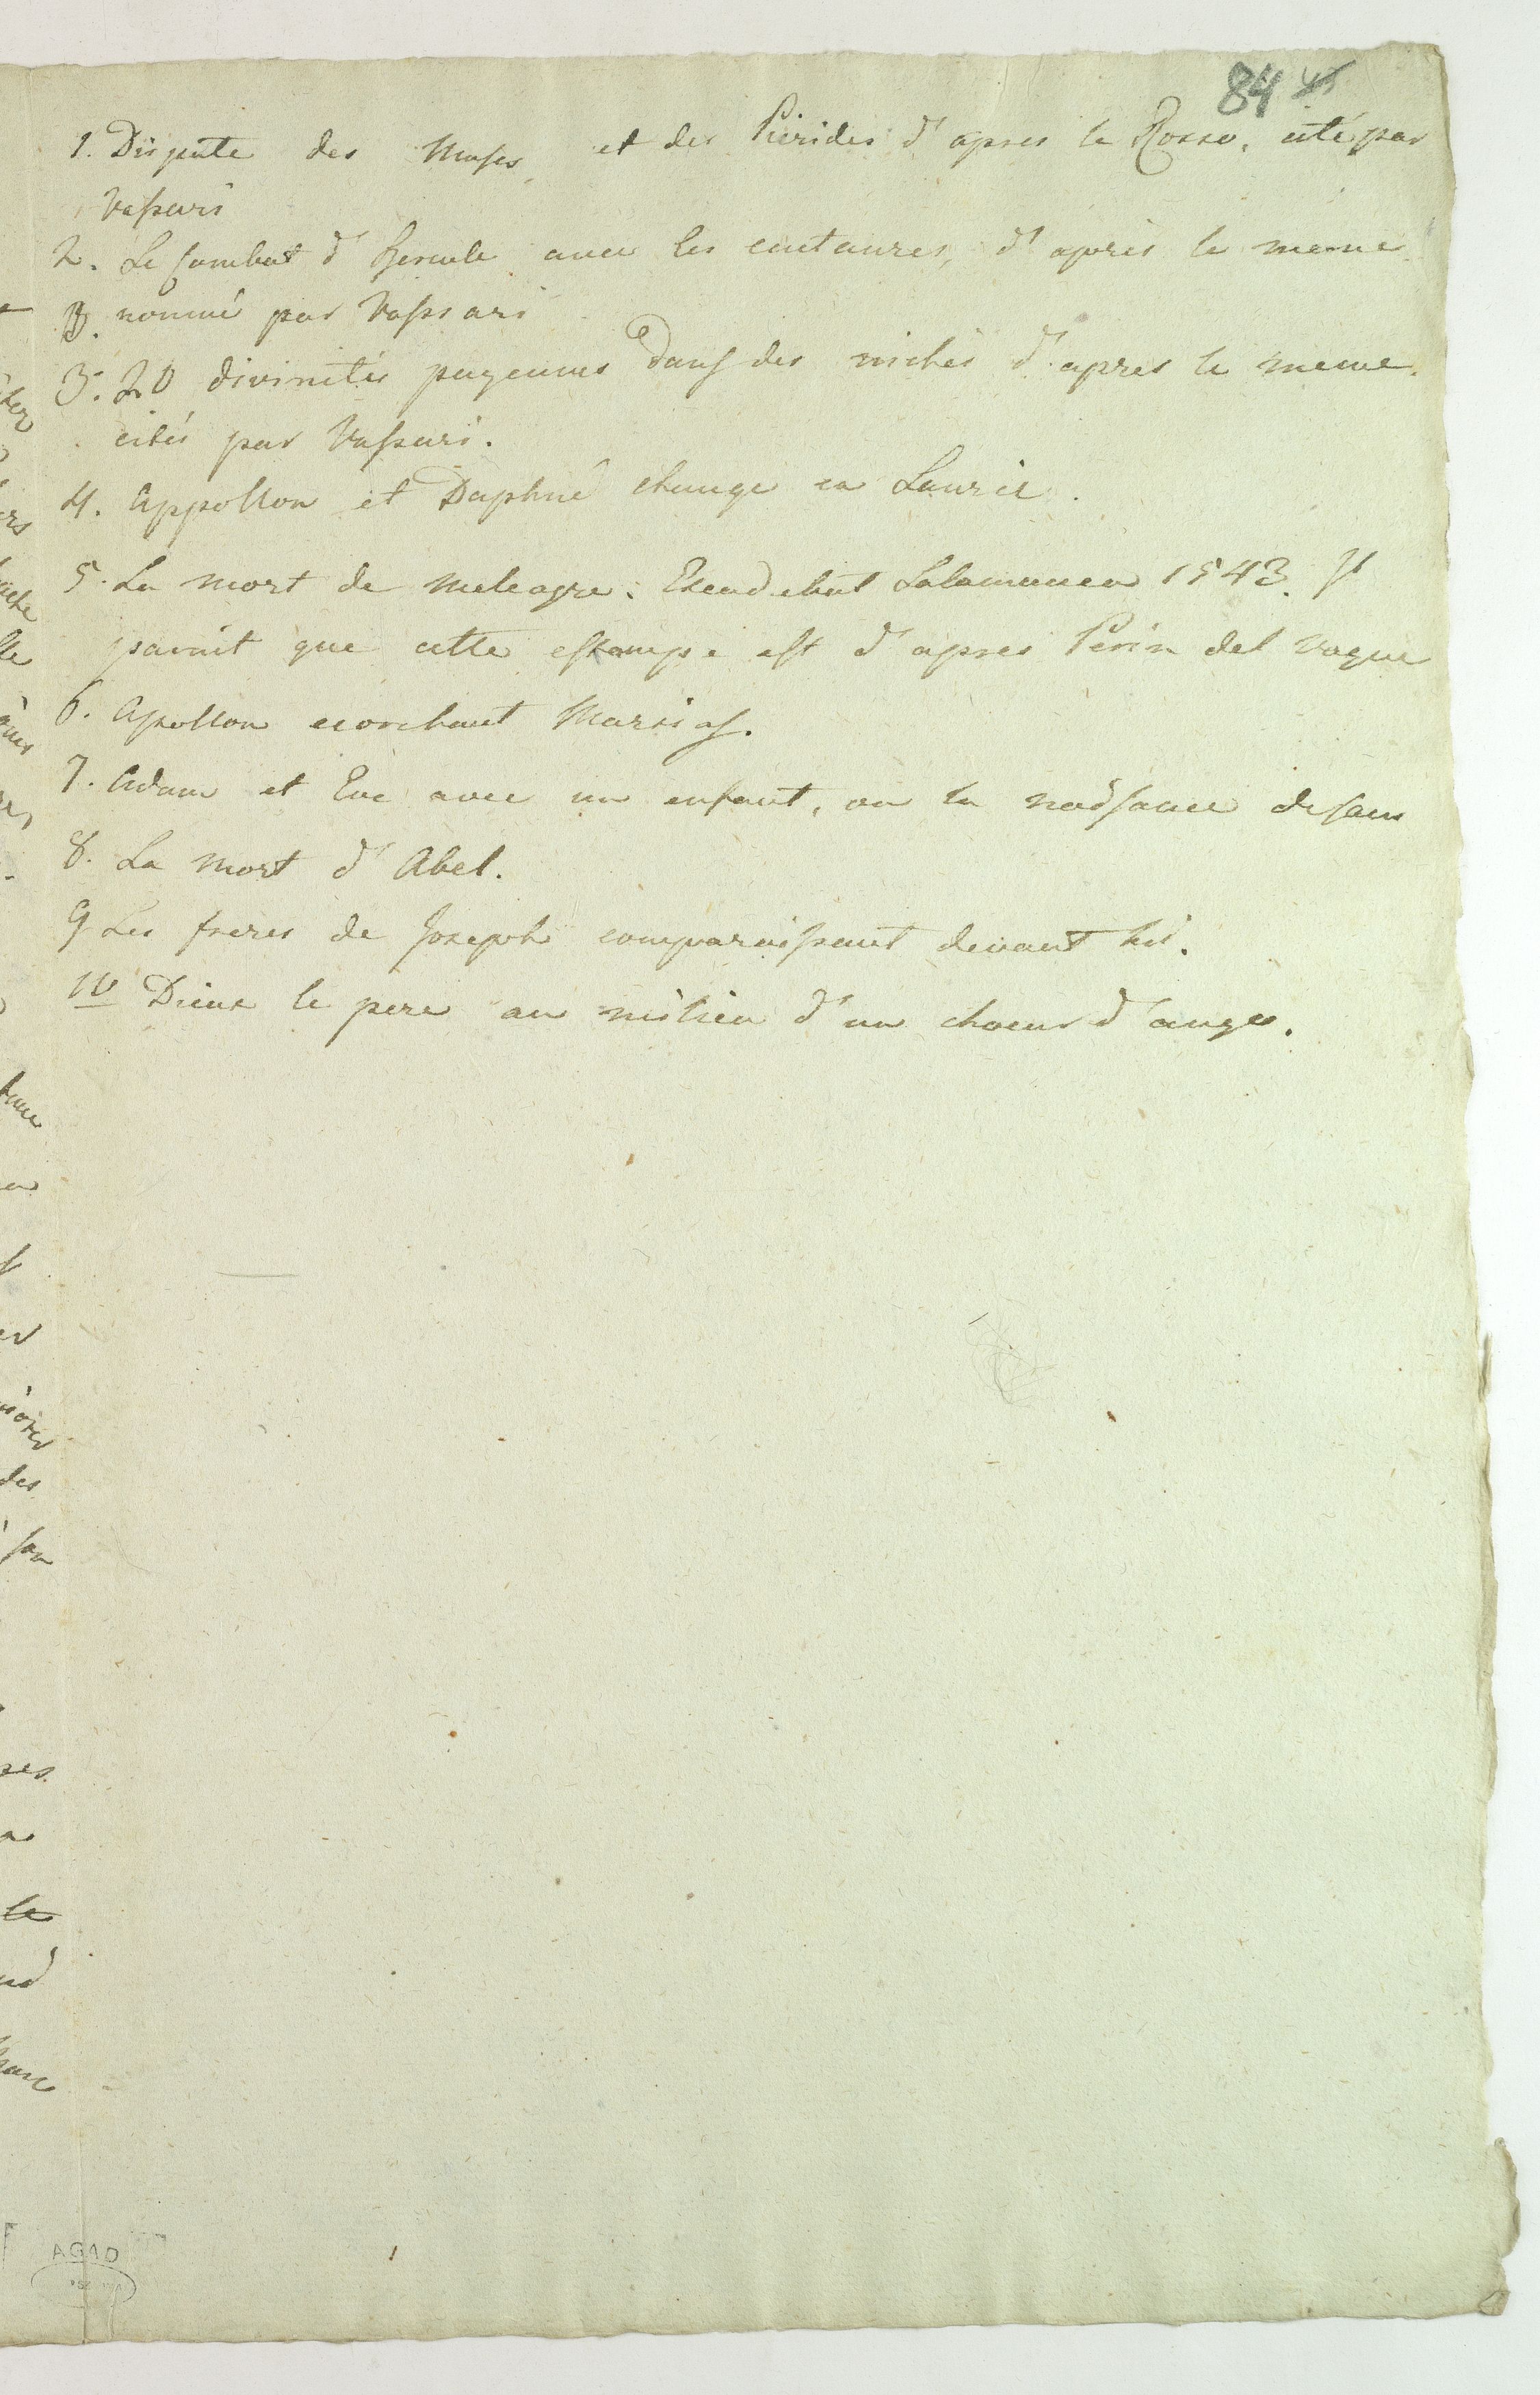 84 45
1. Dispute des Muses et des Pierides d'apres le Rosso, cité par
Vassari
2. Le Combat d'Hercule avec les centaures, d'après le meme
3. nommé par Vassari
3. 20 divinités payennes dans des niches d'apres le meme.
cités par Vassari.
4. Appollon et Daphné changé en Laurie.
5. La mort de meleagre. Excudebat Salamanca 1543. Il
parait que cette estampe est d'apres Perin del vague
6. Apollon ecorchant Marsias.
7. Adam et Eve avec un enfant, ou la naissance de
8. La mort d'Abel.
9 Les freres de Joseph comparaissant devant lui.
10 Dieux le pere au milieu d'un choeur d'anges.
des
le
AGAD